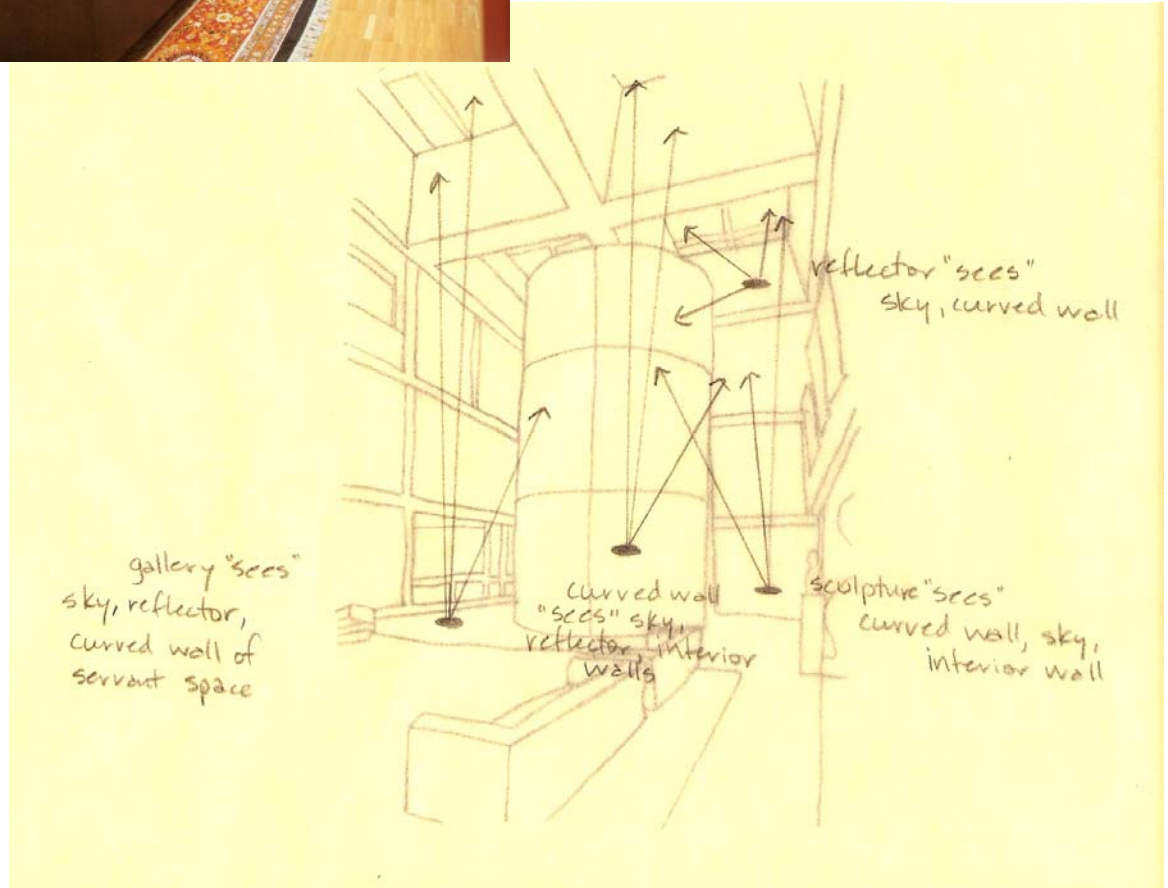 reflector "sees"
sky, curved wall
gallery "sees"
sky, reflector,
curved wall of
servant space
curved wall
"sees" sky,
reflector, interior
walls
sculpture "sees"
curved wall, sky,
interior wall